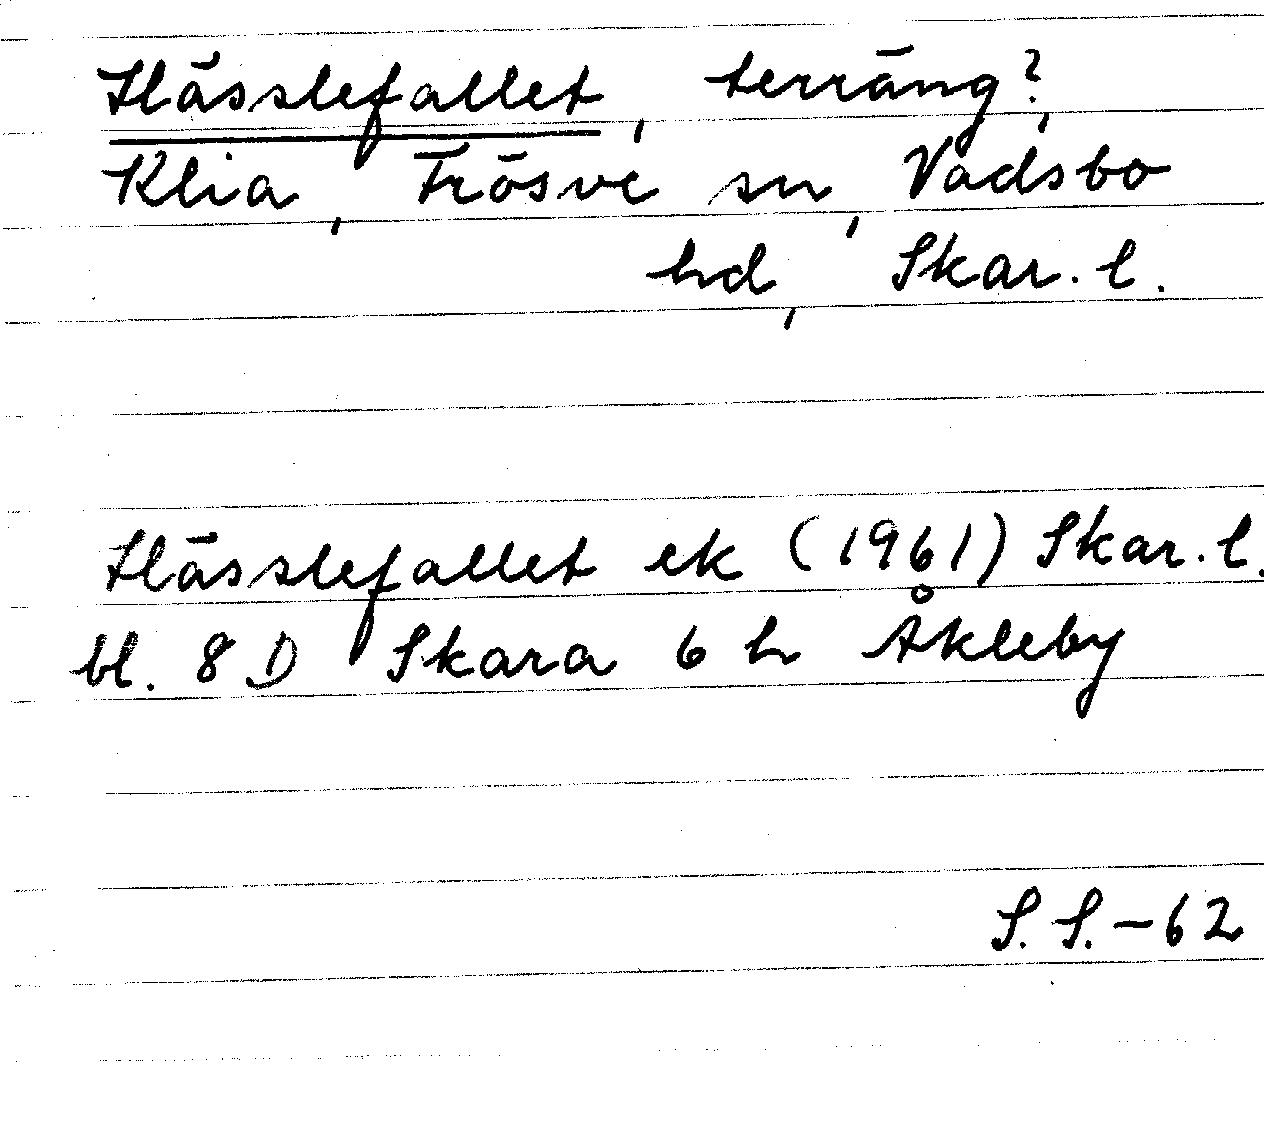 Hässlefallet, terräng?,
Klia, Frösve sn, Vadsbo
hd, Skar. l.
Hässlefallet ek (1961) Skar. l.
bl. 8 D Skara 6 h Åkleby
S. S. - 62